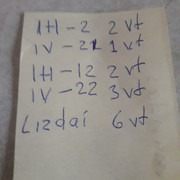 IH-2 2 vt
IV-21 1 vt
IH-12 2 vt
IV-22 3 vt
Lizdai 6 vt